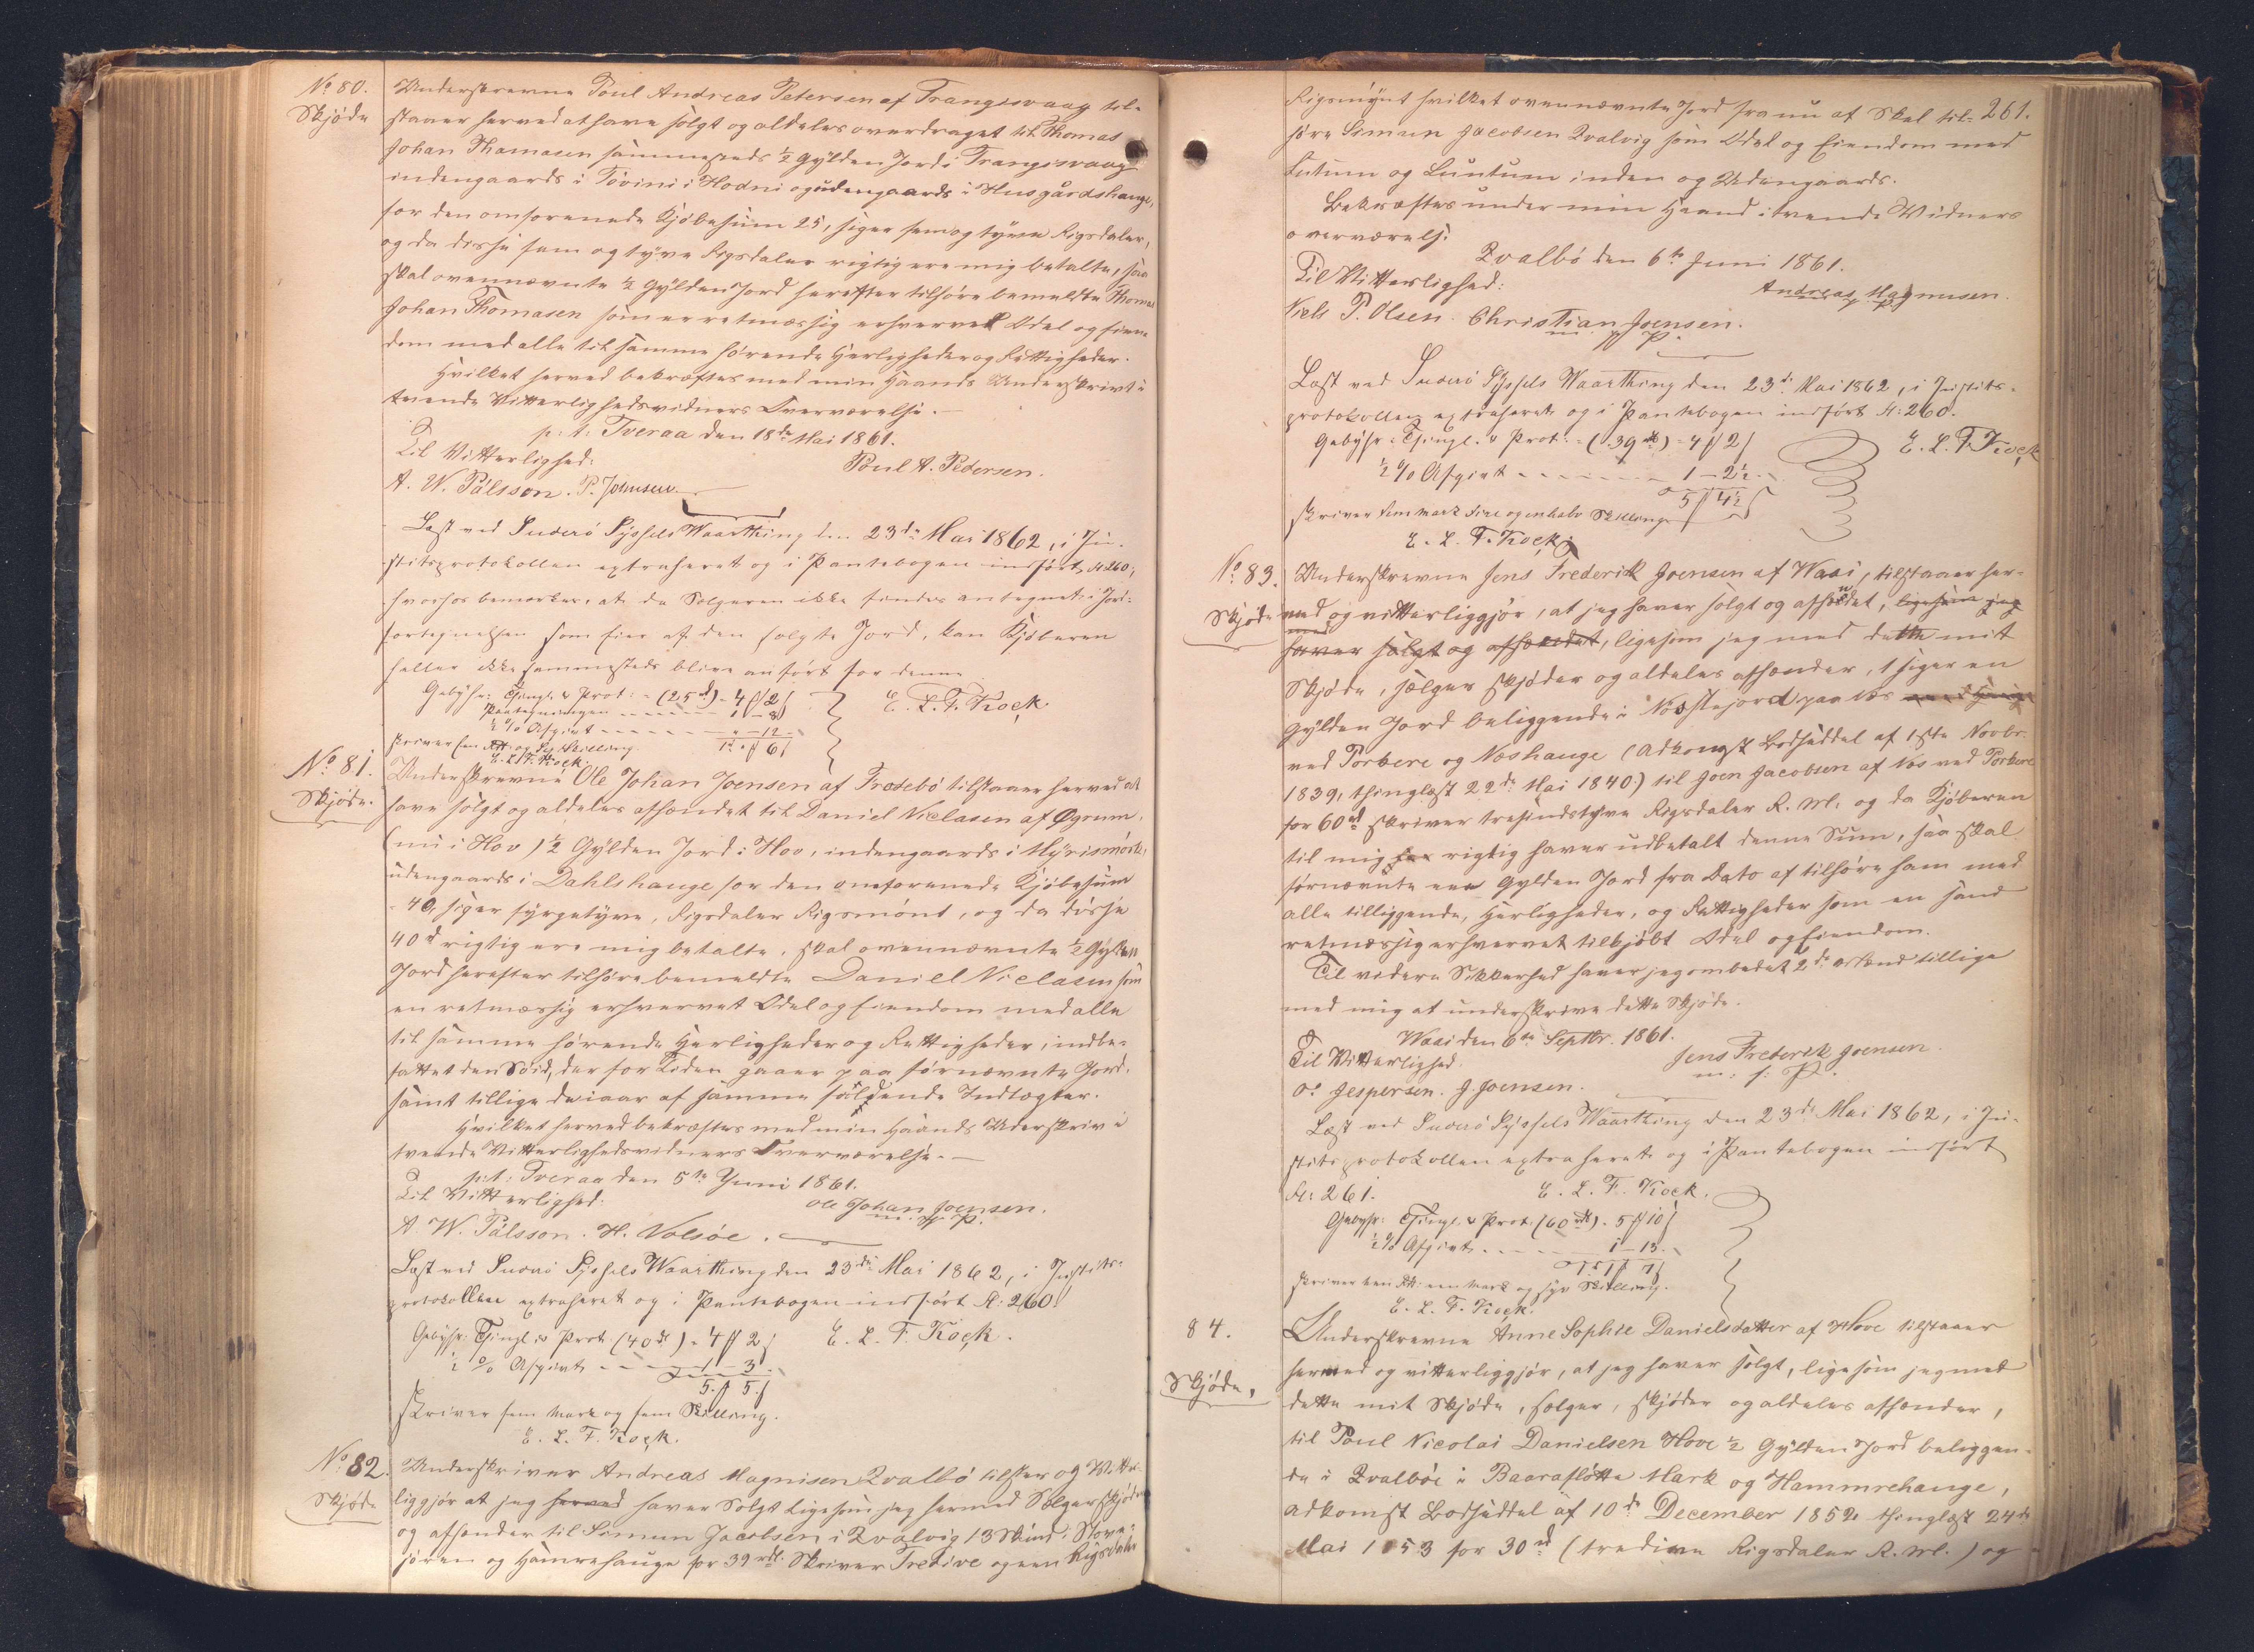 No 80.
Skjøde
Underskrevne Poul Andreas Petersen af Trangisvaag til-
staaer herved at have solgt og aldeles overdraget til Thomas
Johan Thomasen sammesteds ½ Gylden Jord i Trangisvaag
indengaards i Tövini i Hodni og udengaards i Husgårdshauge,
for den omforenede Kjøbesum 25, siger fem og tyve Rigsdaler,
og da disse fem og tyve Rigsdaler rigtig ere mig betalte, saa
skal ovennævnte ½ Gylden Jord herefter tilhøre bemeldte Thomas
Johan Thomasen som en retmæssig erhvervet Odel og Eien-
dom med alle til samme hørende Herligheder og Rettigheder.
Hvilket herved bekræftes med min Haands Underskrivt i
tvende Vitterlighedsvidners Overværelse.—
p: t: Tveraa den 18de Mai 1861.
Til Vitterlighed:
Poul A. Pedersen.
A. W. Pålsson. P. Johnsen
Læst ved Suderö Syssels Waarthing den 23de Mai 1862, i Ju-
stitsprotokollen extraheret og i Pantebogen indført Fol: 260;
hvorhos bemærkes, at da Sælgeren ikke findes antegnet i Jord-
fortegnelsen som Eier af den solgte Jord, kan Kjøberen
heller ikke sammesteds blive anført for denne
Gebyhr: Thingl. & Prot: = (25 rd) - 4 ₰ 2 s
Paategningen - - - - 1 - 8
½ % Afgivt - - - - „ - 12
E. L. F. Kock
E. L. F. Kock.
No 81.
Skjøde.
Underskrevne Ole Johan Joensen af Frodebö tilstaaer herved at
have solgt og aldeles afhændet til Daniel Niclasen af Øgrum,
(nu i Hov) ½ Gylden Jord i Hov, indengaards i Myrismörk,
udengaards i Dahlshauge for den omforenede Kjøbesum
40, siger fyrgetyve, Rigsdaler Rigsmönt, og da disse
40 rd rigtig ere mig betalte, skal ovennævnte ½ Gylden
Jord herefter tilhøre bemeldte Daniel Niclasen som
en retmæssig erhvervet Odel og Eiendom med alle
til samme hørende Herligheder og Rettigheder, indbe-
fattet den Sæd, der for Tiden gaaer paa førnævnte Jord.
samt tillige de i aar af samme faldende Indtægter.
Hvilket herved bekræftes med min Haands Underskriv i
tvende Vitterlighedsvidners Overværelse.—
p: t: Tveraa den 5te Juni 1861.
Til Vitterlighed:
Ole Johan Joensen.
m. f. P.
A. W. Pålsson. H. Volsöe.
Læst ved Suderö Syssels Waarthing den 23de Mai 1862, i Justits-
protokollen extraheret og i Pantebogen indført Fol: 260.
Gebyhr: Thingl. & Prot. (40 rd) - 4 ₰ 2 s
E. L. F. Kock.
½ % Afgivt - - - 1 - 3
5 ₰ 5 s
skriver fem Mark og fem Skilling.
E. L. F. Kock.
No 82.
Skjøde
Underskriver Andreas Magnisen Qvalbö tilstaaer og Vitter-
liggjör at jeg herved haver Solgt Ligesom jeg hermed Sælger skjöder
og afhender til Simun Jacobsen i Qvalvig 13 Skind i Stove-
jören og Hamrehauge for 39 rdl. Skriver Tredive og een Rigsdaler
261.
Rigsmynt hvilket ovennævnte Jord fra nu af Skal til-
höre Simun Jacobsen Qvalvig som Odel og Eiendom med
Lutum og Luntum inden og Udengaards.
Bekræftes under min Haand i tvende Widners
overværelse.
Qvalbö den 6te Juni 1861.
Til Vitterlighed:
Andreas Magnusen.
Niels P. Olsen. Christian Joensen.
m. f. P.
Læst ved Suderö Syssels Waarthing den 23de Mai 1862, i Justits-
protokollen extraheret og i Pantebogen indført Fol: 260.
Gebyhr: Thingl. & Prot. = (39 rd) - 4 ₰ 2 s
E. L. F. Kock
½ % Afgivt - - - - 1 - 2½
5 ₰ 4½ s
skriver fem Mark fire og en halv Skilling
E. L. F. Kock.
No 83.
Skjøde
Underskrevne Jens Frederik Joensen af Waai, tilstaaer her-
ved og vitterliggjør, at jeg haver solgt og afhændet, ligesom jeg
haver solgt og afhændet, ligesom jeg med dette mit
Skjøde, sælger skjøder og aldeles afhænder, 1 siger en
Gylden Jord beliggende i Næstajord paa Næs
ved Porkere og Næshauge (Adkomst Bodseddel af 1ste Novbr.
1839, thinglæst 22de Mai 1840.) til Joen Jacobsen af Næs ved Porkere
for 60 rd skriver tresindstyve Rigsdaler R. M. og da Kjøberen
til mig har rigtig haver udbetalt denne Sum, saa skal
førnævnte een Gylden Jord fra Dato af tilhøre ham med
alle tilliggende, Herligheder, og Rettigheder som en sand
retmæssig erhvervet tilkjöbt Odel og Eiendom.
Til videre Sikkerhed haver jeg ombedet 2de Mænd tillige
med mig at underskrive dette Skjøde.
Waai den 6te Septbr. 1861.
Til Vitterlighed.
Jens Frederik Joensen.
m: f: P.
O. Jespersen. J. Joensen.
Læst ved Suderö Syssels Waarthing den 23de Mai 1862, i Ju-
stitsprotokollen extraheret og i Pantebogen indført
Fol: 261.
E. L. F. Kock.
Gebyhr: Thingl. & Prot. (60 rd) - 5 ₰ 10 s
½ % Afgivt - - - - 1 - 13
skriver een Rdl. een Mark og syv Skilling.
E. L. F. Kock.
84.
Skjøde,
Underskrevne Anne Sophie Danielsdatter af Hove tilstaaer
herved og vitterliggjør, at jeg haver solgt, ligesom jeg med
dette mit Skjøde, sælger, skjøder og aldeles afhænder,
til Poul Nicolai Danielsen Hove ½ Gylden Jord beliggen-
de i Qvalböe i Baaraflötte Mark og Hammrehauge,
Adkomst Bodseddel af 10de December 1852 thinglæst 24de
Mai 1853 for 30 rd (tredive Rigsdaler R. M.) og